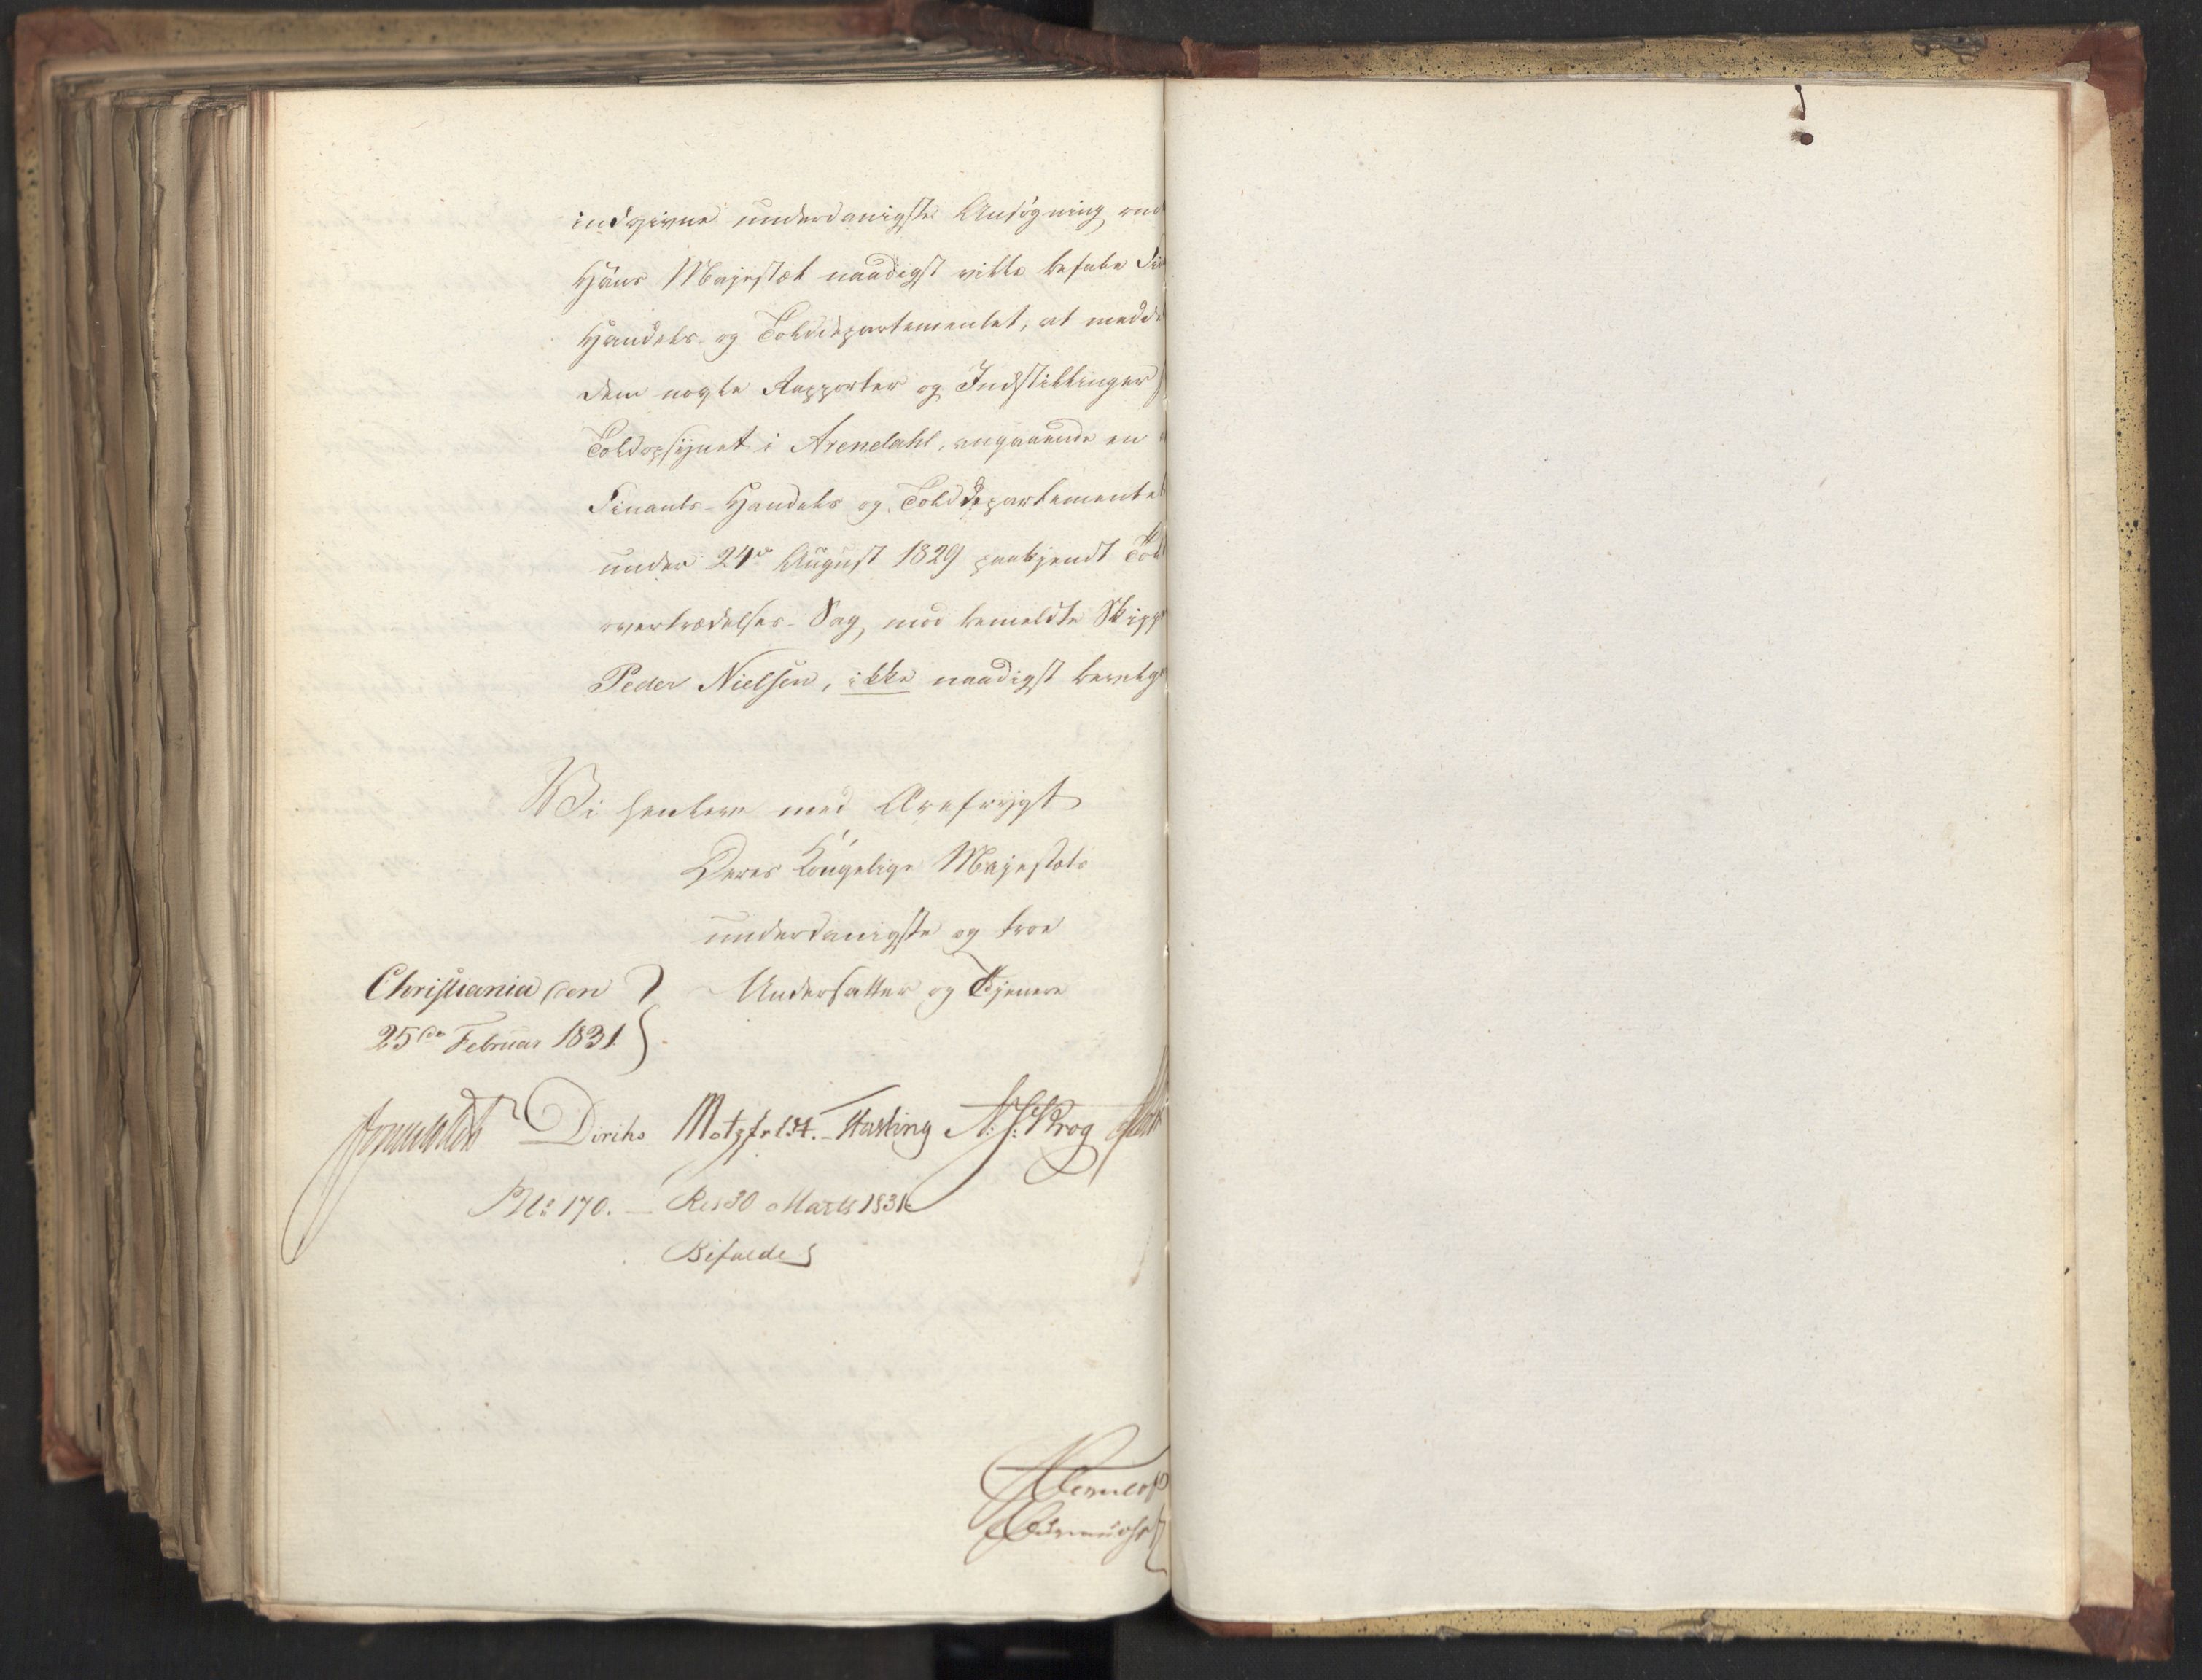 indgivne underdanigste Ansøgning, om
Hans Majestæt naadigst vilde befale Fi
Handels- og Tolddepartementet, at medde
dem nogle Rapporter og Indstillinger
Toldopsynet i Arendahl, angaaende en
Finants- Handels og Tolddepartemente
under 24de August 1829 paakjendt Told
overtrædelses-Sag, mod bemeldte Skipp
Peder Nielsen, ikke naadigst bevilg
Vi henleve med Ærefrygt
Deres Kongelige Majestæts
underdanigste og troe
Christiania den Undersatter og Tjenere
25de Februar 1831
Diriks Motzfeldt. Fasting N: J: Krog
No: 170. — Res 30 Marts 1831
Bifaldes